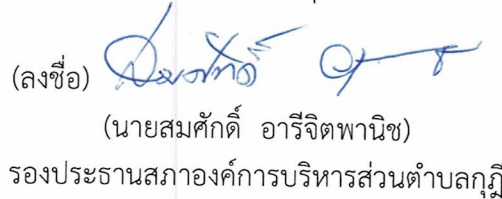 (ลงชื่อ) สมศักดิ์
(นายสมศักดิ์ อารีจิตพานิช)
รองประธานสภาองค์การบริหารส่วนตำบลกุฎี